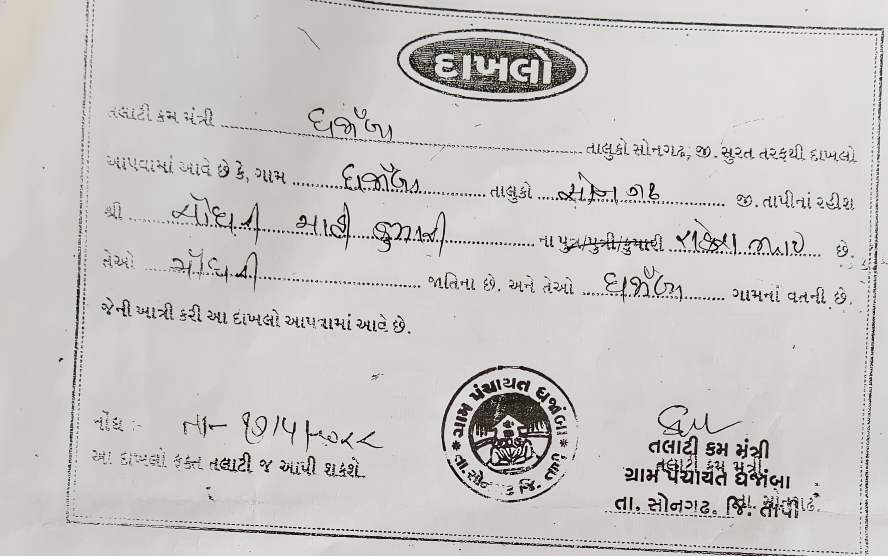 દાખલો
તલાટી કમ મંત્રી ધજાઁબા તાલુકો સોનગઢ, જી. સુરત તરફથી દાખલો
આપવામાં આવે છે કે, ગામ ધજાઁબા તાલુકો સોનગઢ જી. તાપીનાં રહીશ
શ્રી ચૌધરી કુમારી ના પુત્ર/પુત્રી/કુમારી છે.
તેઓ ચૌધરી જાતિના છે. અને તેઓ ધજાઁબા ગામનાં વતની છે.
જેની ખાત્રી કરી આ દાખલો આપવામાં આવે છે.
ગ્રામ પંચાયત ધજાંબા
તા. સોનગઢ જિ. તાપી
નોંધ :- તા-
આ દાખલો ફક્ત તલાટી જ આપી શકશે.
તલાટી કમ મંત્રી
તલાટી કમ મંત્રી
ગ્રામ પંચાયત ધજાંબા
તા. સોનગઢ. જિ. તાપી